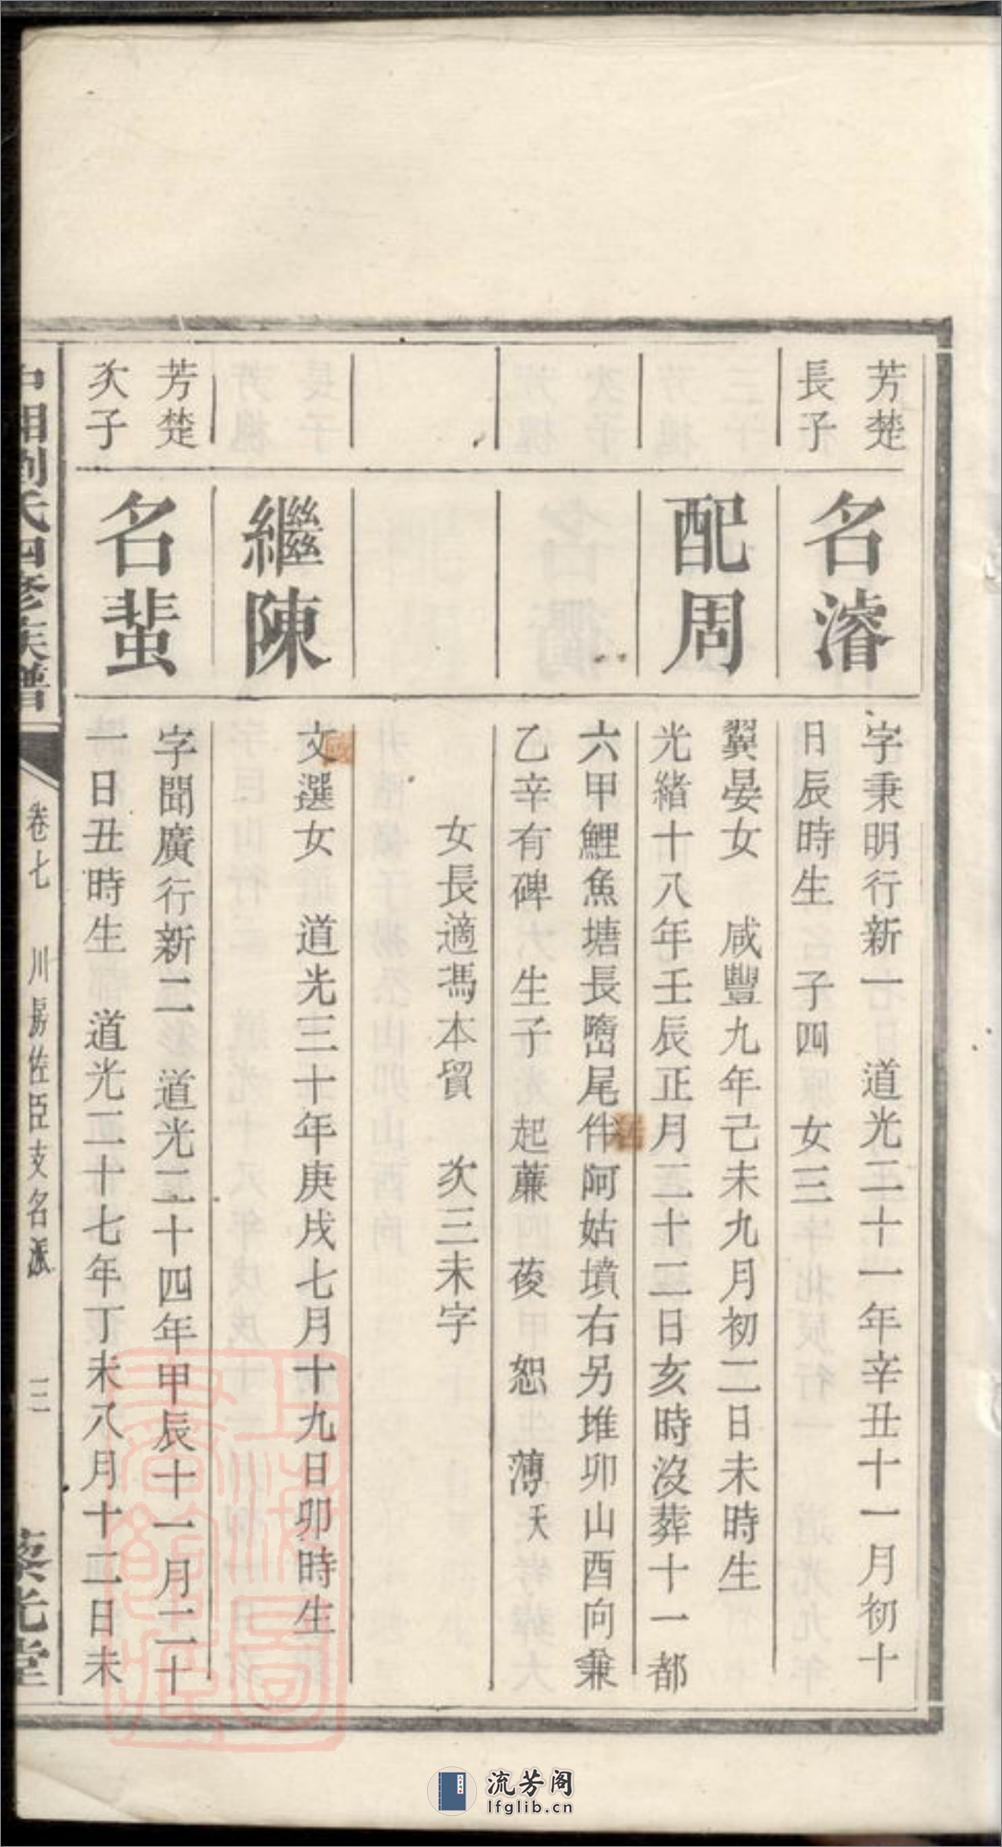 芳楚
長子
名濬
字秉明行新一　道光二十一年辛丑十一月初十
日辰時生　子四　女三
配周
翼晏女　咸豐九年己未九月初二日未時生
光緒十八年壬辰正月二十二日亥時沒葬十一都
六甲鯉魚塘長塯尾伴阿姑墳右另堆卯山酉向兼
乙辛有碑　生子　起蔗　葰　恕　薄夭
女長適馮本貿　次三未字
繼陳
文選女　道光三十年庚戌七月十九日卯時生
芳楚
次子
名蜚
字聞廣行新二　道光二十四年甲辰十一月二十
一日丑時生　道光二十七年丁未八月十二日未
中湘劉氏四修族譜
卷七　川房佐臣支名派　三
藜光堂
流芳阁
lfglib.cn